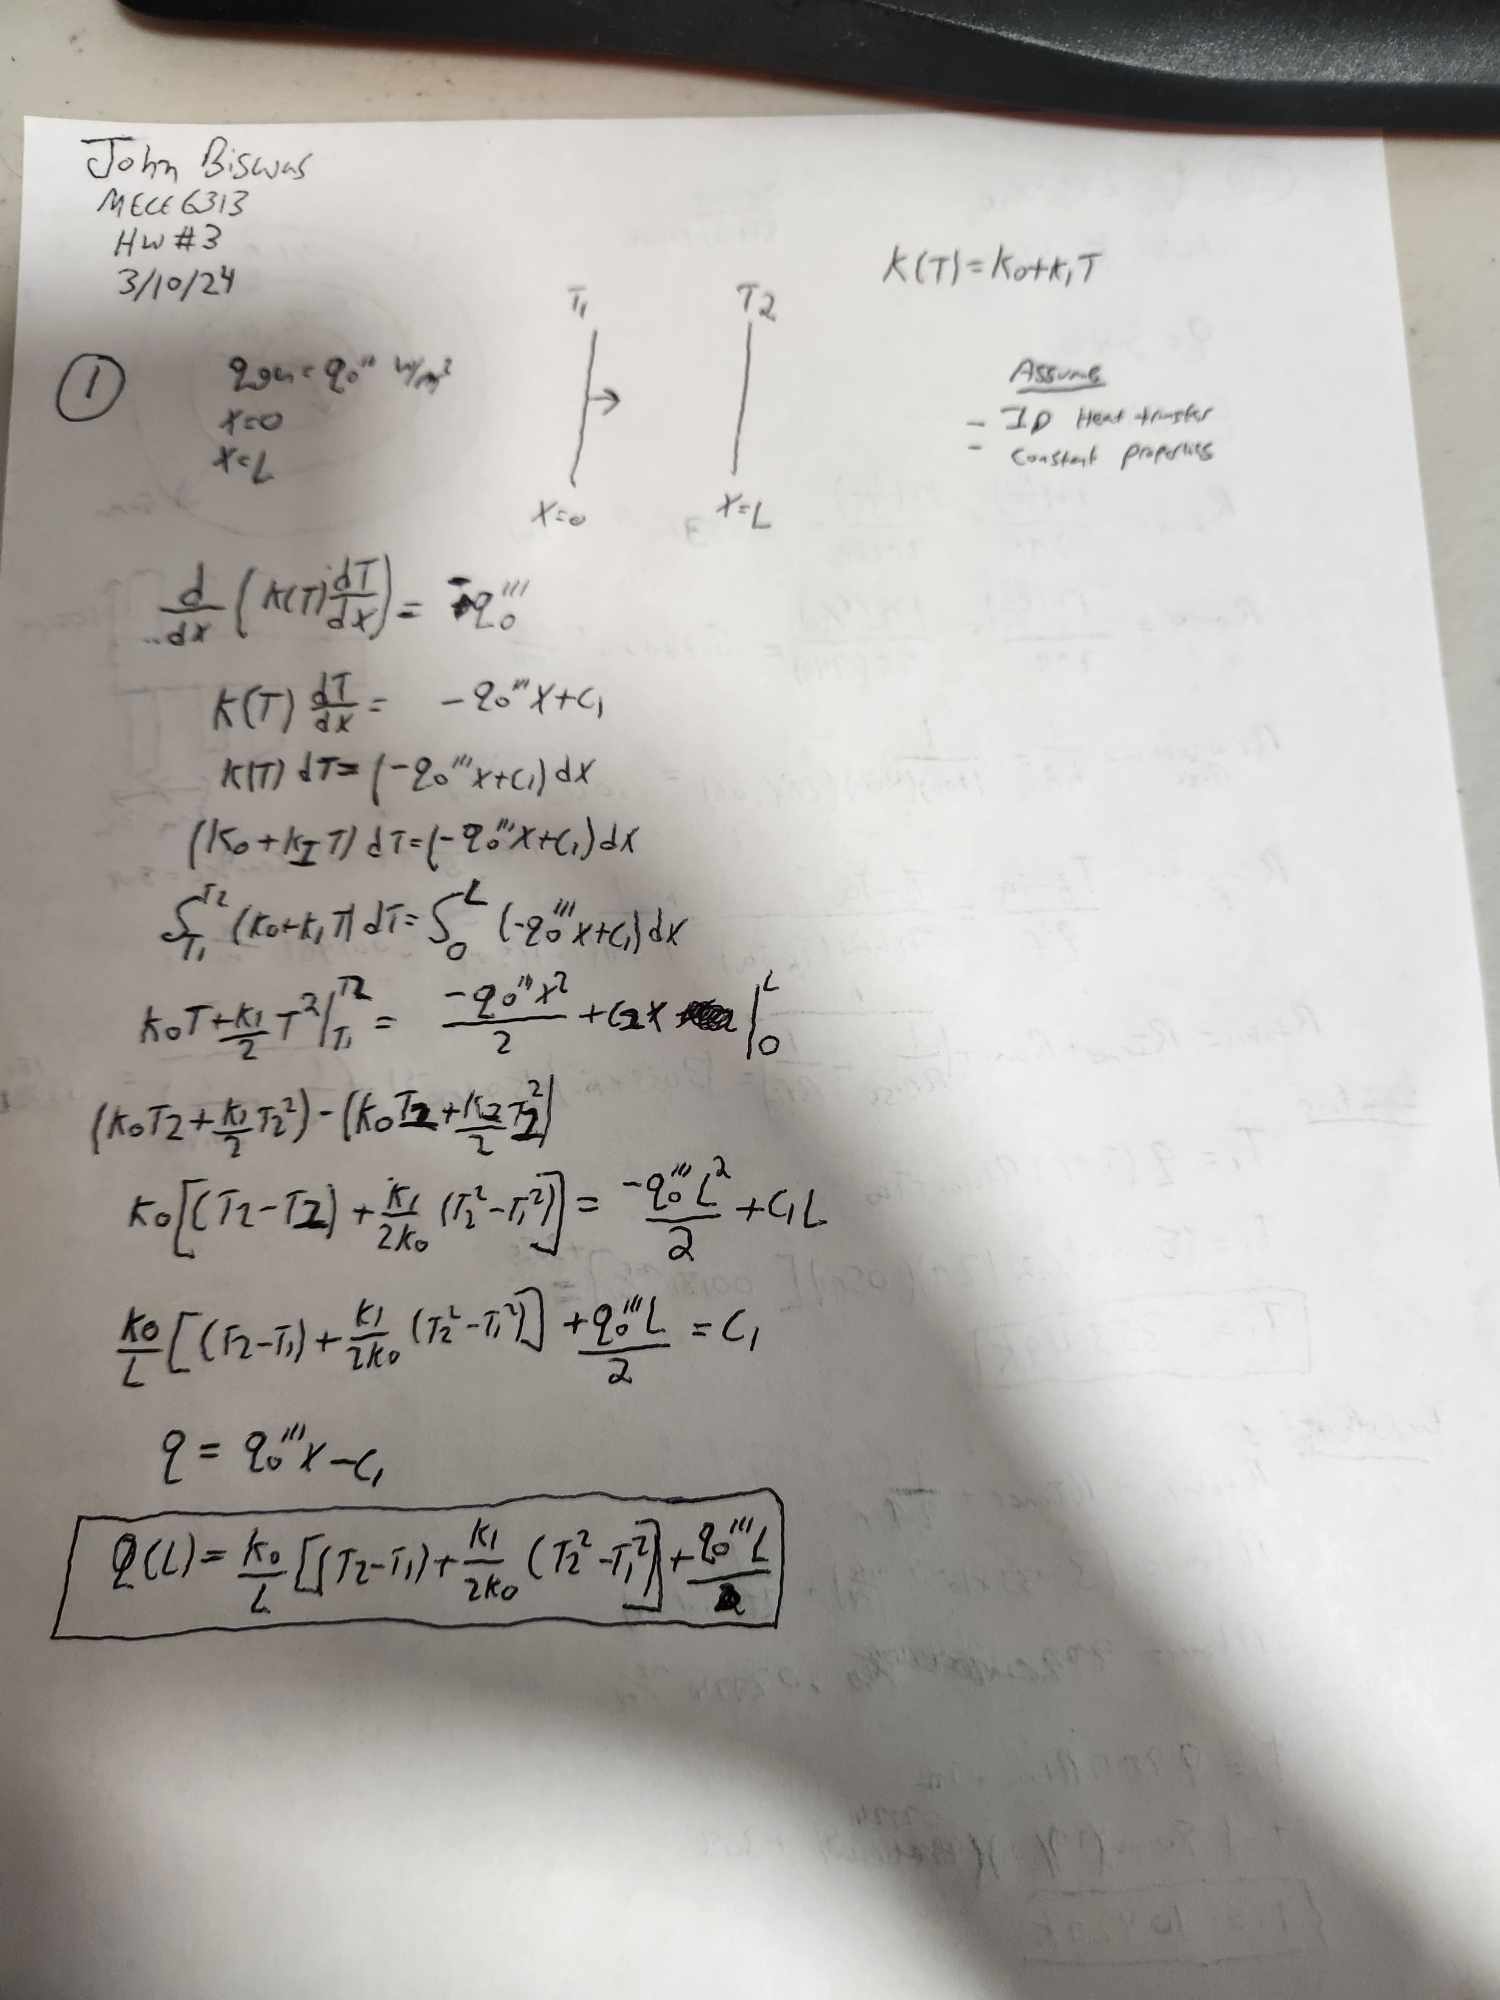 John Biswas
MECE 6313
HW #3
3/10/24
K(T) = K0+K1T
T1 T2
① qgen = q0''' W/m³
x=0
x=L
Assume
- 1D Heat transfer
- Constant properties
x=0 x=L
d/dx (K(T) dT/dx) = -q0'''
K(T) dT/dx = -q0'''x+C1
K(T) dT = (-q0'''x+C1) dx
(K0+K1T) dT = (-q0'''x+C1) dx
∫T1^T2 (K0+K1T) dT = ∫0^L (-q0'''x+C1) dx
K0T+K1/2 T²|T1^T2 = -q0'''x²/2 + C2x |0^L
(K0T2+K1/2 T2²)-(K0T2+K2/2 T2²)
K0[(T2-T2)+K1/2K0 (T2²-T1²)] = -q0'''L²/2 +C1L
K0/L [(T2-T1)+K1/2K0 (T2²-T1²)] + q0'''L/2 = C1
q = q0'''x-C1
Q(L) = K0/L [(T2-T1)+K1/2K0 (T2²-T1²)] + q0'''L/2